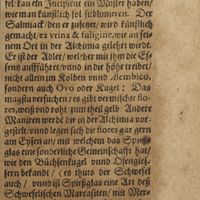 fel kan ein Incipient ein Muster haben /
wie man künstlich sol sublimieren. Der
Salmiack / den er zusetzet / wird künstlich
gemacht / ex vrina & fuligine, wie an sei-
nem Ort in der Alchimia gelehrt wirdt.
Er ist der Adler / welcher mit ihm die Es-
senz aufführet / vnnd in die höhe treibet /
nicht allein im Kolben vnnd Alembico,
sondern auch Ovo oder Kugel: Das
magstu versuchen / es gibt vermischte flo-
res, weiß vnd roht / zum theil gelb Andere
Maniren werdē dir in der Alchimia vor-
gestelt / vnnd legen sich die flores gar gern
am Eysen an / mit welchem das Spieß-
glas eine sonderliche Gemeinschafft hat /
wie den Büchsenkugel vnnd Ofengies-
sern bekandt / (es thuts der Schwefel
auch / vnnd ist Spießglas eine Art deß
Schwefelischen Marcasiten / mit Mer-